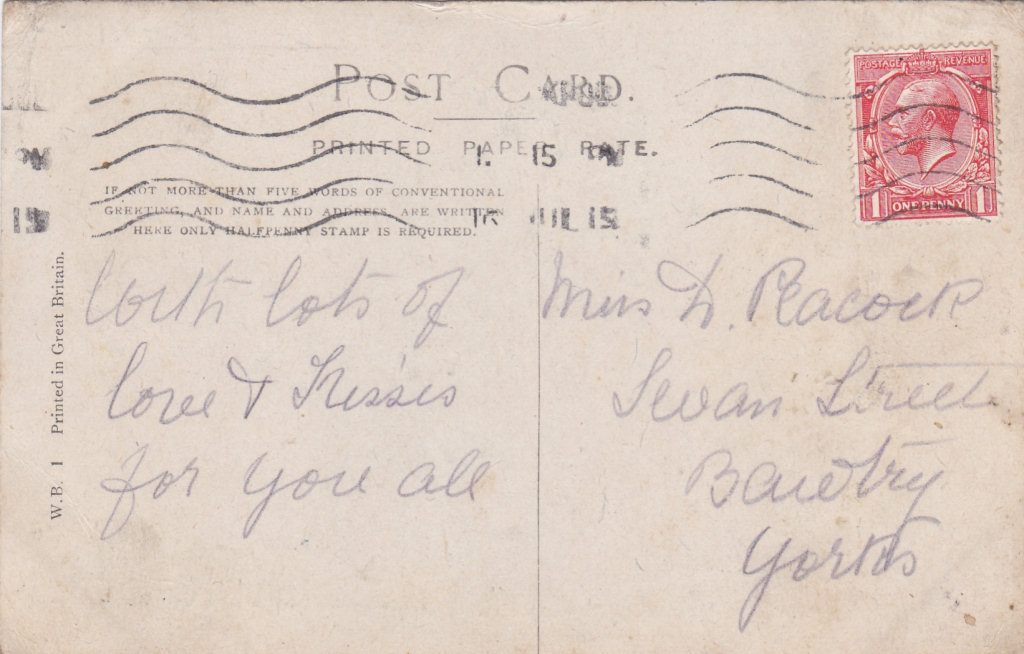 POST CARD.
PRINTED PAPER RATE.
1. 15 PM
15 JUL 15
IF NOT MORE THAN FIVE WORDS OF CONVENTIONAL
GREETING, AND NAME AND ADDRESS, ARE WRITTEN
HERE ONLY HALFPENNY STAMP IS REQUIRED.
POSTAGE REVENUE
1 ONE PENNY 1
W.B. 1 Printed in Great Britain.
With lots of
love & Kisses
for you all
Miss D. Peacock
Swan Street
Bawtry
Yorks